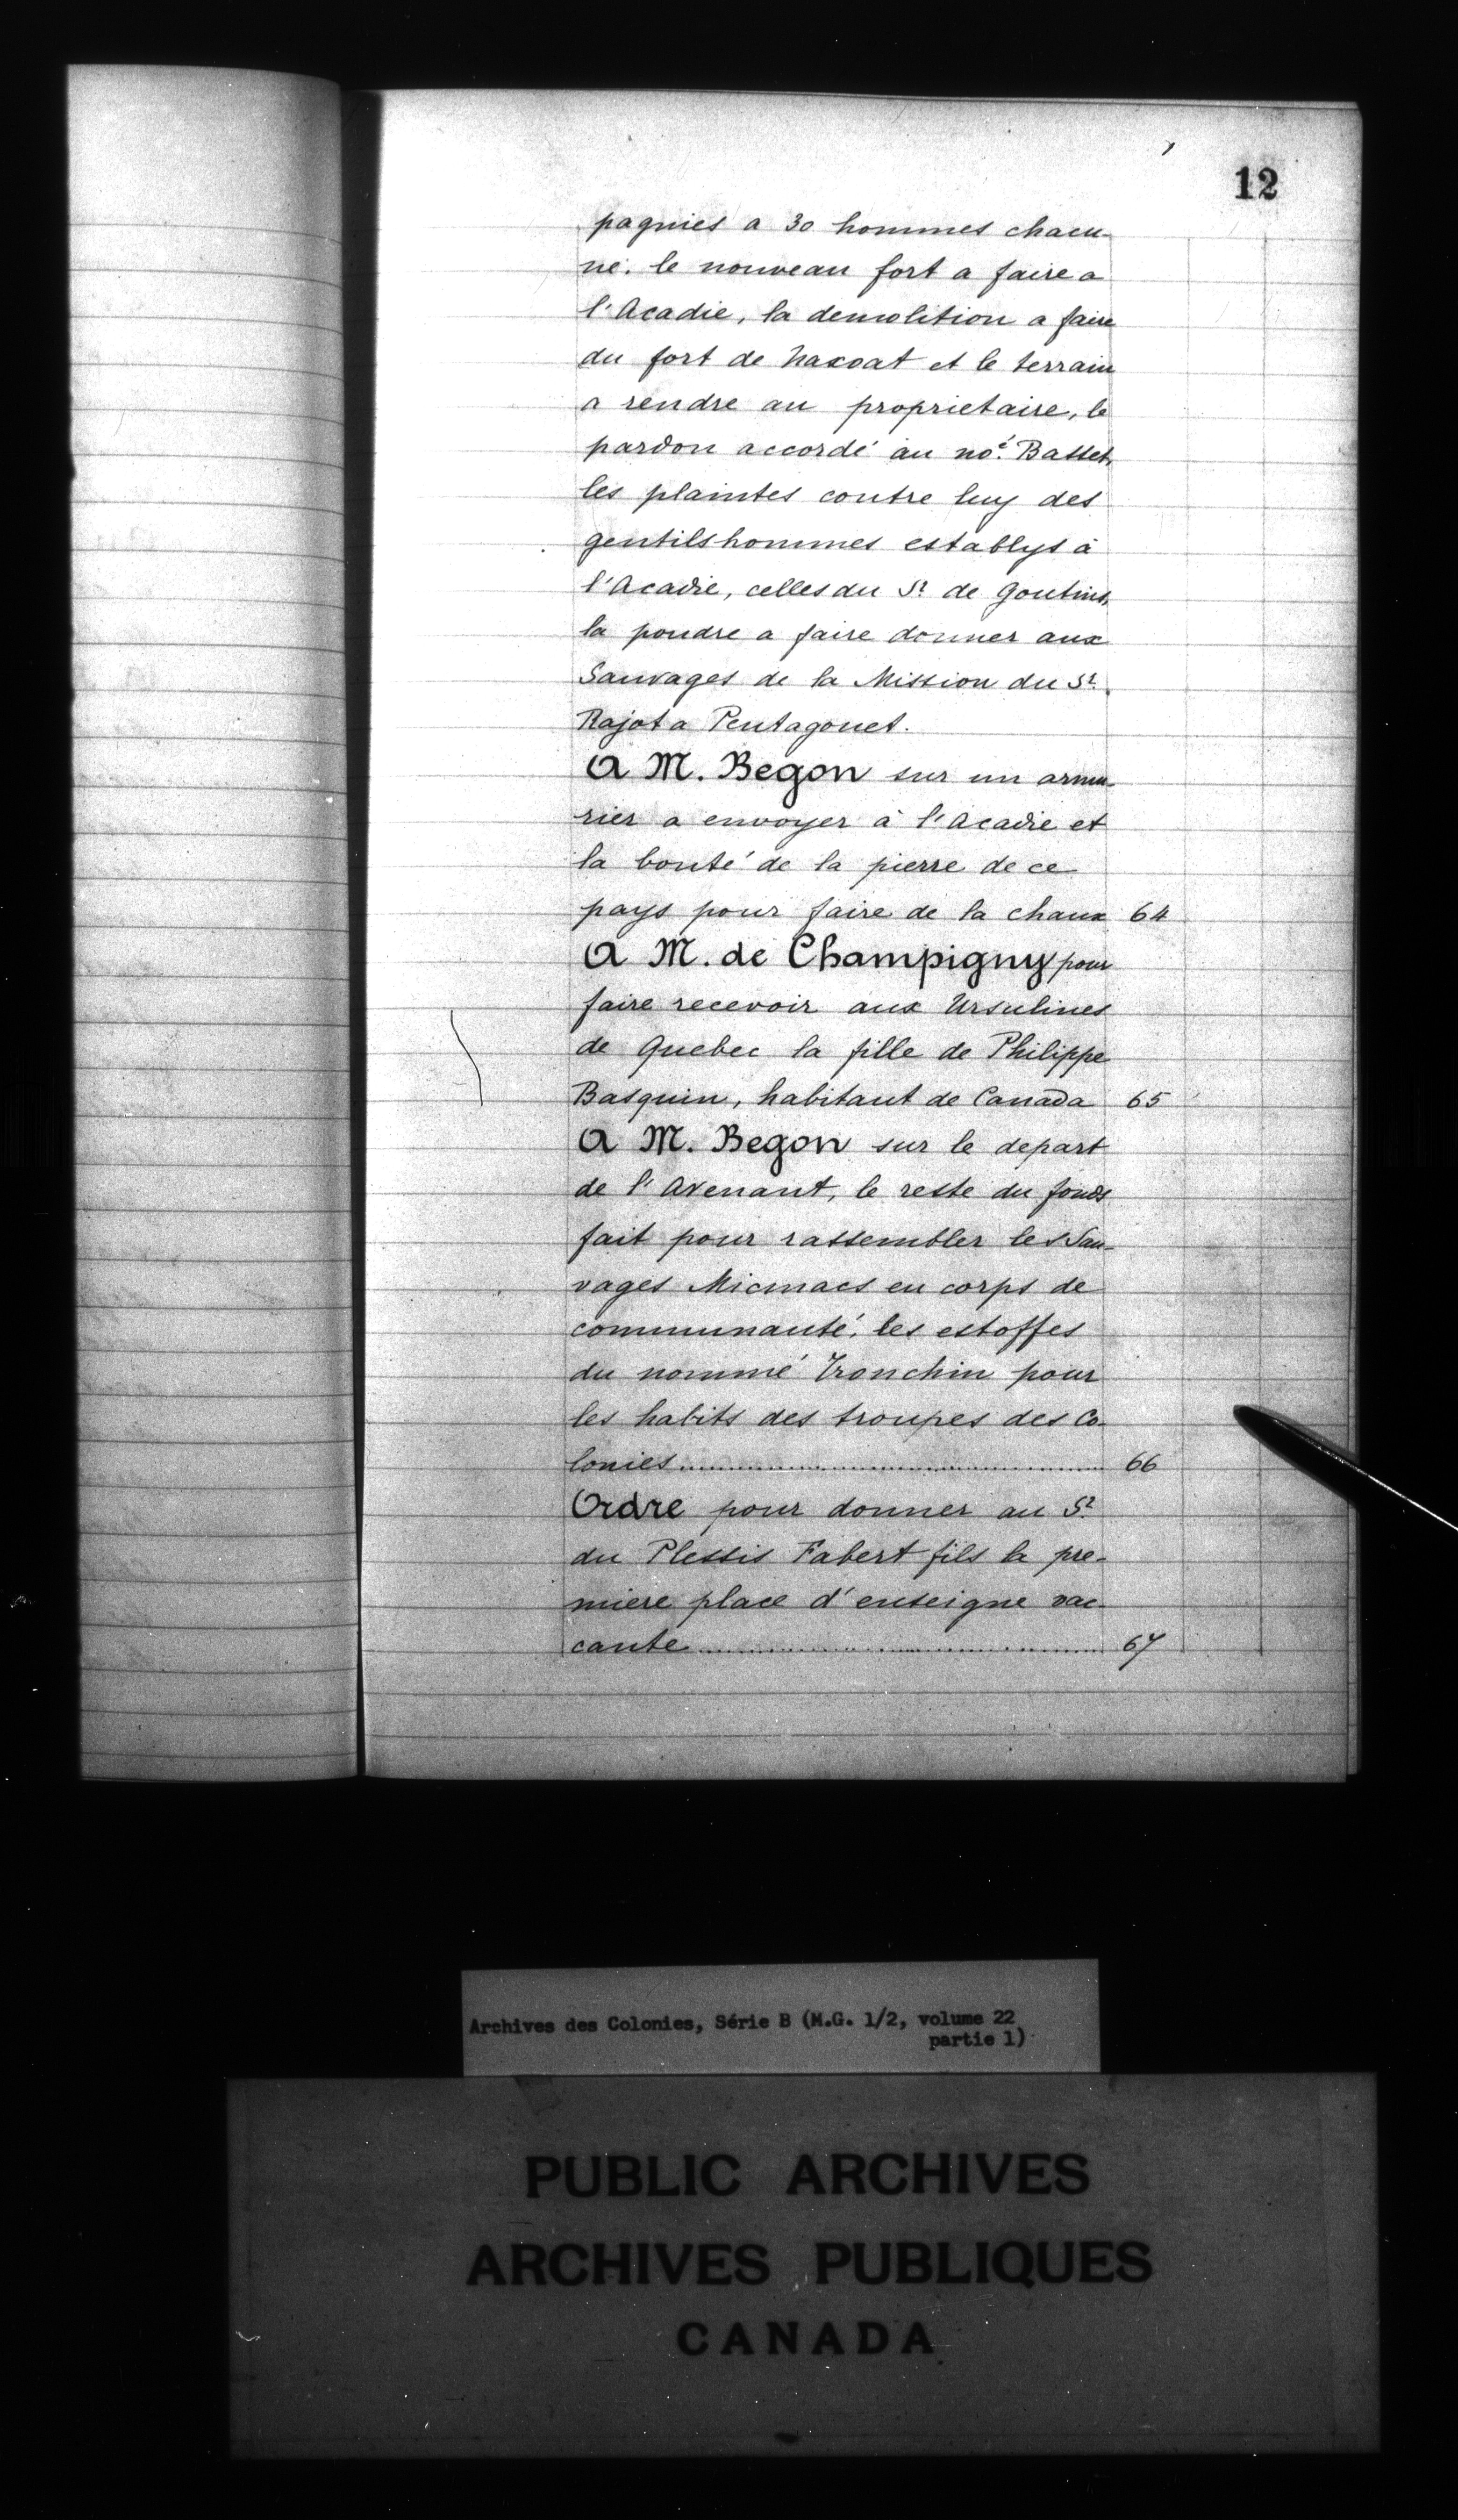 12
pagnies a 30 hommes chacu-
ne. le nouveau fort a faire a
l'Acadie, la demolition a faire
du fort de Naxoat et le terrain
a rendre au proprietaire, le
pardon accordé au no.é Basset,
les plaintes contre luy des
gentilshommes establys à
l'Acadie, celles du Sr. de Goutins,
la poudre a faire donner aux
Sauvages de la Mission du Sr.
Rajot a Pentagouet.
A M. Begon sur un armu-
rier a envoyer à l'Acadie et
la bonté de la pierre de ce
pays pour faire de la chaux 64
A M. de Champigny pour
faire recevoir aux Ursulines
de Quebec la fille de Philippe
Basquin, habitant de Canada 65
A M. Begon sur le depart
de l'Avenant, le reste du fonds
fait pour rassembler les Sau-
vages Micmacs en corps de
communauté, les estoffes
du nommé Tronchin pour
les habits des troupes des Co-
lonies 66
Ordre pour donner au Sr.
du Plessis Fabert fils la pre-
miere place d'enseigne vac-
cante 67
Archives des Colonies, Série B (M.G. 1/2, volume 22
partie 1)
PUBLIC ARCHIVES
ARCHIVES PUBLIQUES
CANADA